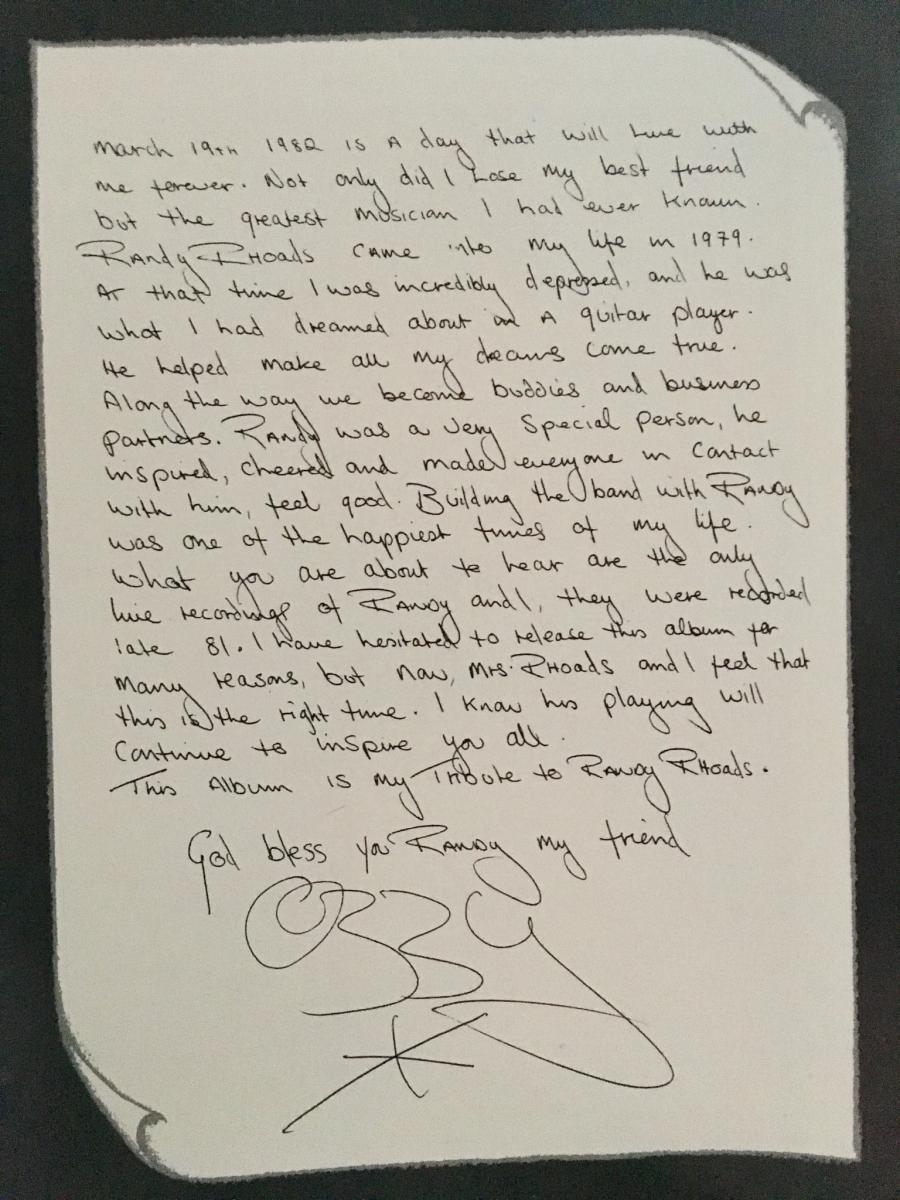 March 19th 1982 is A day that will live with
me forever. Not only did I Lose my best friend
but the greatest musician I had ever known.
Randy Rhoads came into my life in 1979.
At that time I was incredibly depressed, and he was
what I had dreamed about in A guitar player.
He helped make all my dreams come true.
Along the way we become buddies and business
partners. Randy was a very Special person, he
inspired, cheered and made everyone in Contact
with him, feel good. Building the band with Randy
was one of the happiest times of my life.
What you are about to hear are the only
live recordings of Randy and I, they were recorded
late 81. I have hesitated to release this album for
many reasons, but now, Mrs. Rhoads and I feel that
this is the right time. I know his playing will
Continue to inspire you all.
This Album is my Tribute to Randy Rhoads.
God bless you Randy my friend
Ozzy